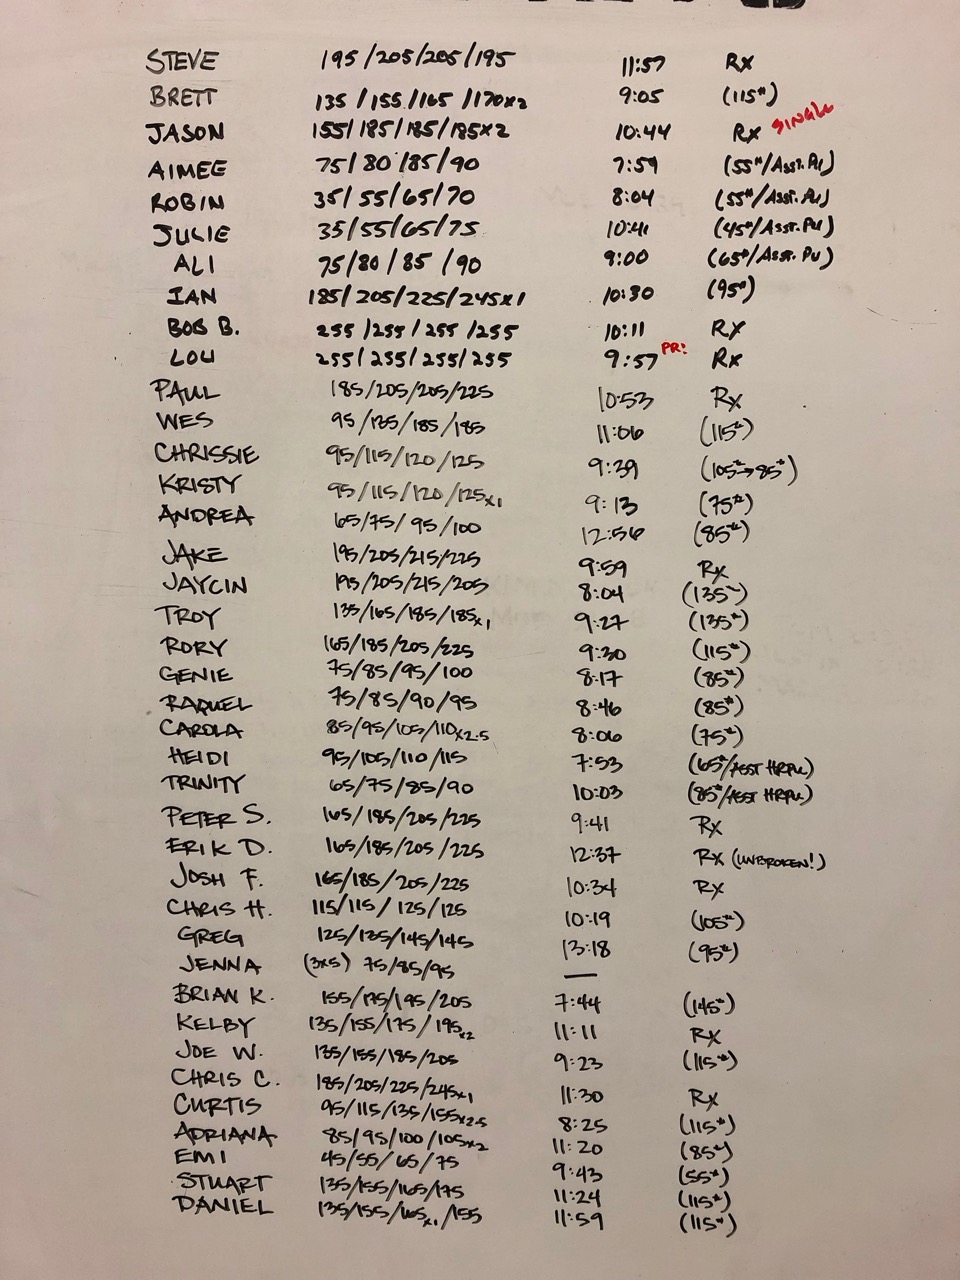 STEVE 195/205/205/195 11:57 Rx
BRETT 135/155/165/170x2 9:05 (115#)
JASON 155/185/185/185x2 10:44 Rx SINGLE
AIMEE 75/80/85/90 7:59 (55#/Asst. PU)
ROBIN 35/55/65/70 8:04 (55#/Asst. PU)
JULIE 35/55/65/75 10:41 (45#/Asst. PU)
ALI 75/80/85/90 9:00 (65#/Asst. PU)
IAN 185/205/225/245x1 10:30 (95#)
BOB B. 255/255/255/255 10:11 Rx
LOU 255/255/255/255 9:57 PR! Rx
PAUL 185/205/205/225 10:53 Rx
WES 95/135/185/185 11:06 (115#)
CHRISSIE 95/115/120/125 9:39 (105#→85#)
KRISTY 95/115/120/125x1 9:13 (75#)
ANDREA 65/75/95/100 12:56 (85#)
JAKE 195/205/215/225 9:59 Rx
JAYCIN 195/205/215/205 8:04 (135#)
TROY 135/165/185/185x1 9:27 (135#)
RORY 165/185/205/225 9:30 (115#)
GENIE 75/85/95/100 8:17 (85#)
RAQUEL 75/85/90/95 8:46 (85#)
CAROLA 85/95/105/110x2.5 8:06 (75#)
HEIDI 95/105/110/115 7:53 (65#/ASST HRPU)
TRINITY 65/75/85/90 10:03 (85#/ASST HRPU)
PETER S. 165/185/205/225 9:41 Rx
ERIK D. 165/185/205/225 12:37 Rx (UNBROKEN!)
JOSH F. 165/185/205/225 10:34 Rx
CHRIS H. 115/115/125/125 10:19 (105#)
GREG 125/135/145/145 13:18 (95#)
JENNA (3x5) 75/85/95 —
BRIAN K. 155/175/195/205 7:44 (145#)
KELBY 135/155/175/195x2 11:11 Rx
JOE W. 135/155/185/205 9:23 (115#)
CHRIS C. 185/205/225/245x1 11:30 Rx
CURTIS 95/115/135/155x2.5 8:25 (115#)
ADRIANA 85/95/100/105x2 11:20 (85#)
EMI 45/55/65/75 9:43 (55#)
STUART 135/155/165/175 11:24 (115#)
DANIEL 135/155/165x1/155 11:59 (115#)